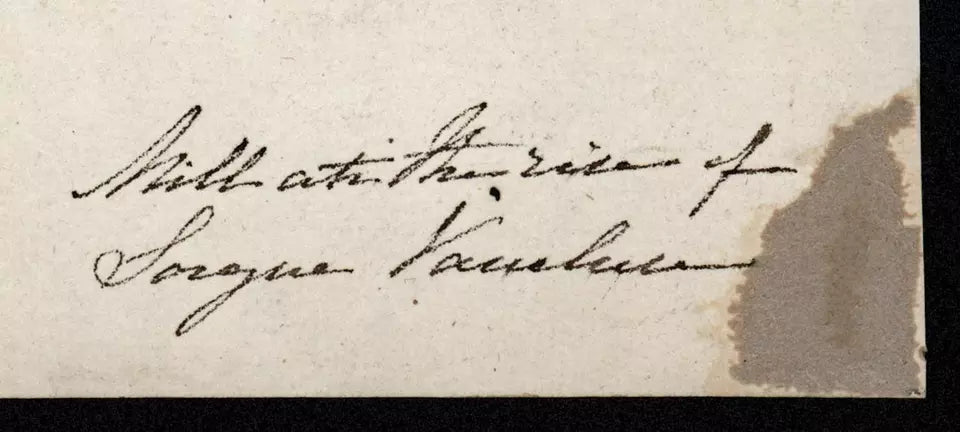 Mill at the rise of
Sorgue Vaucluse